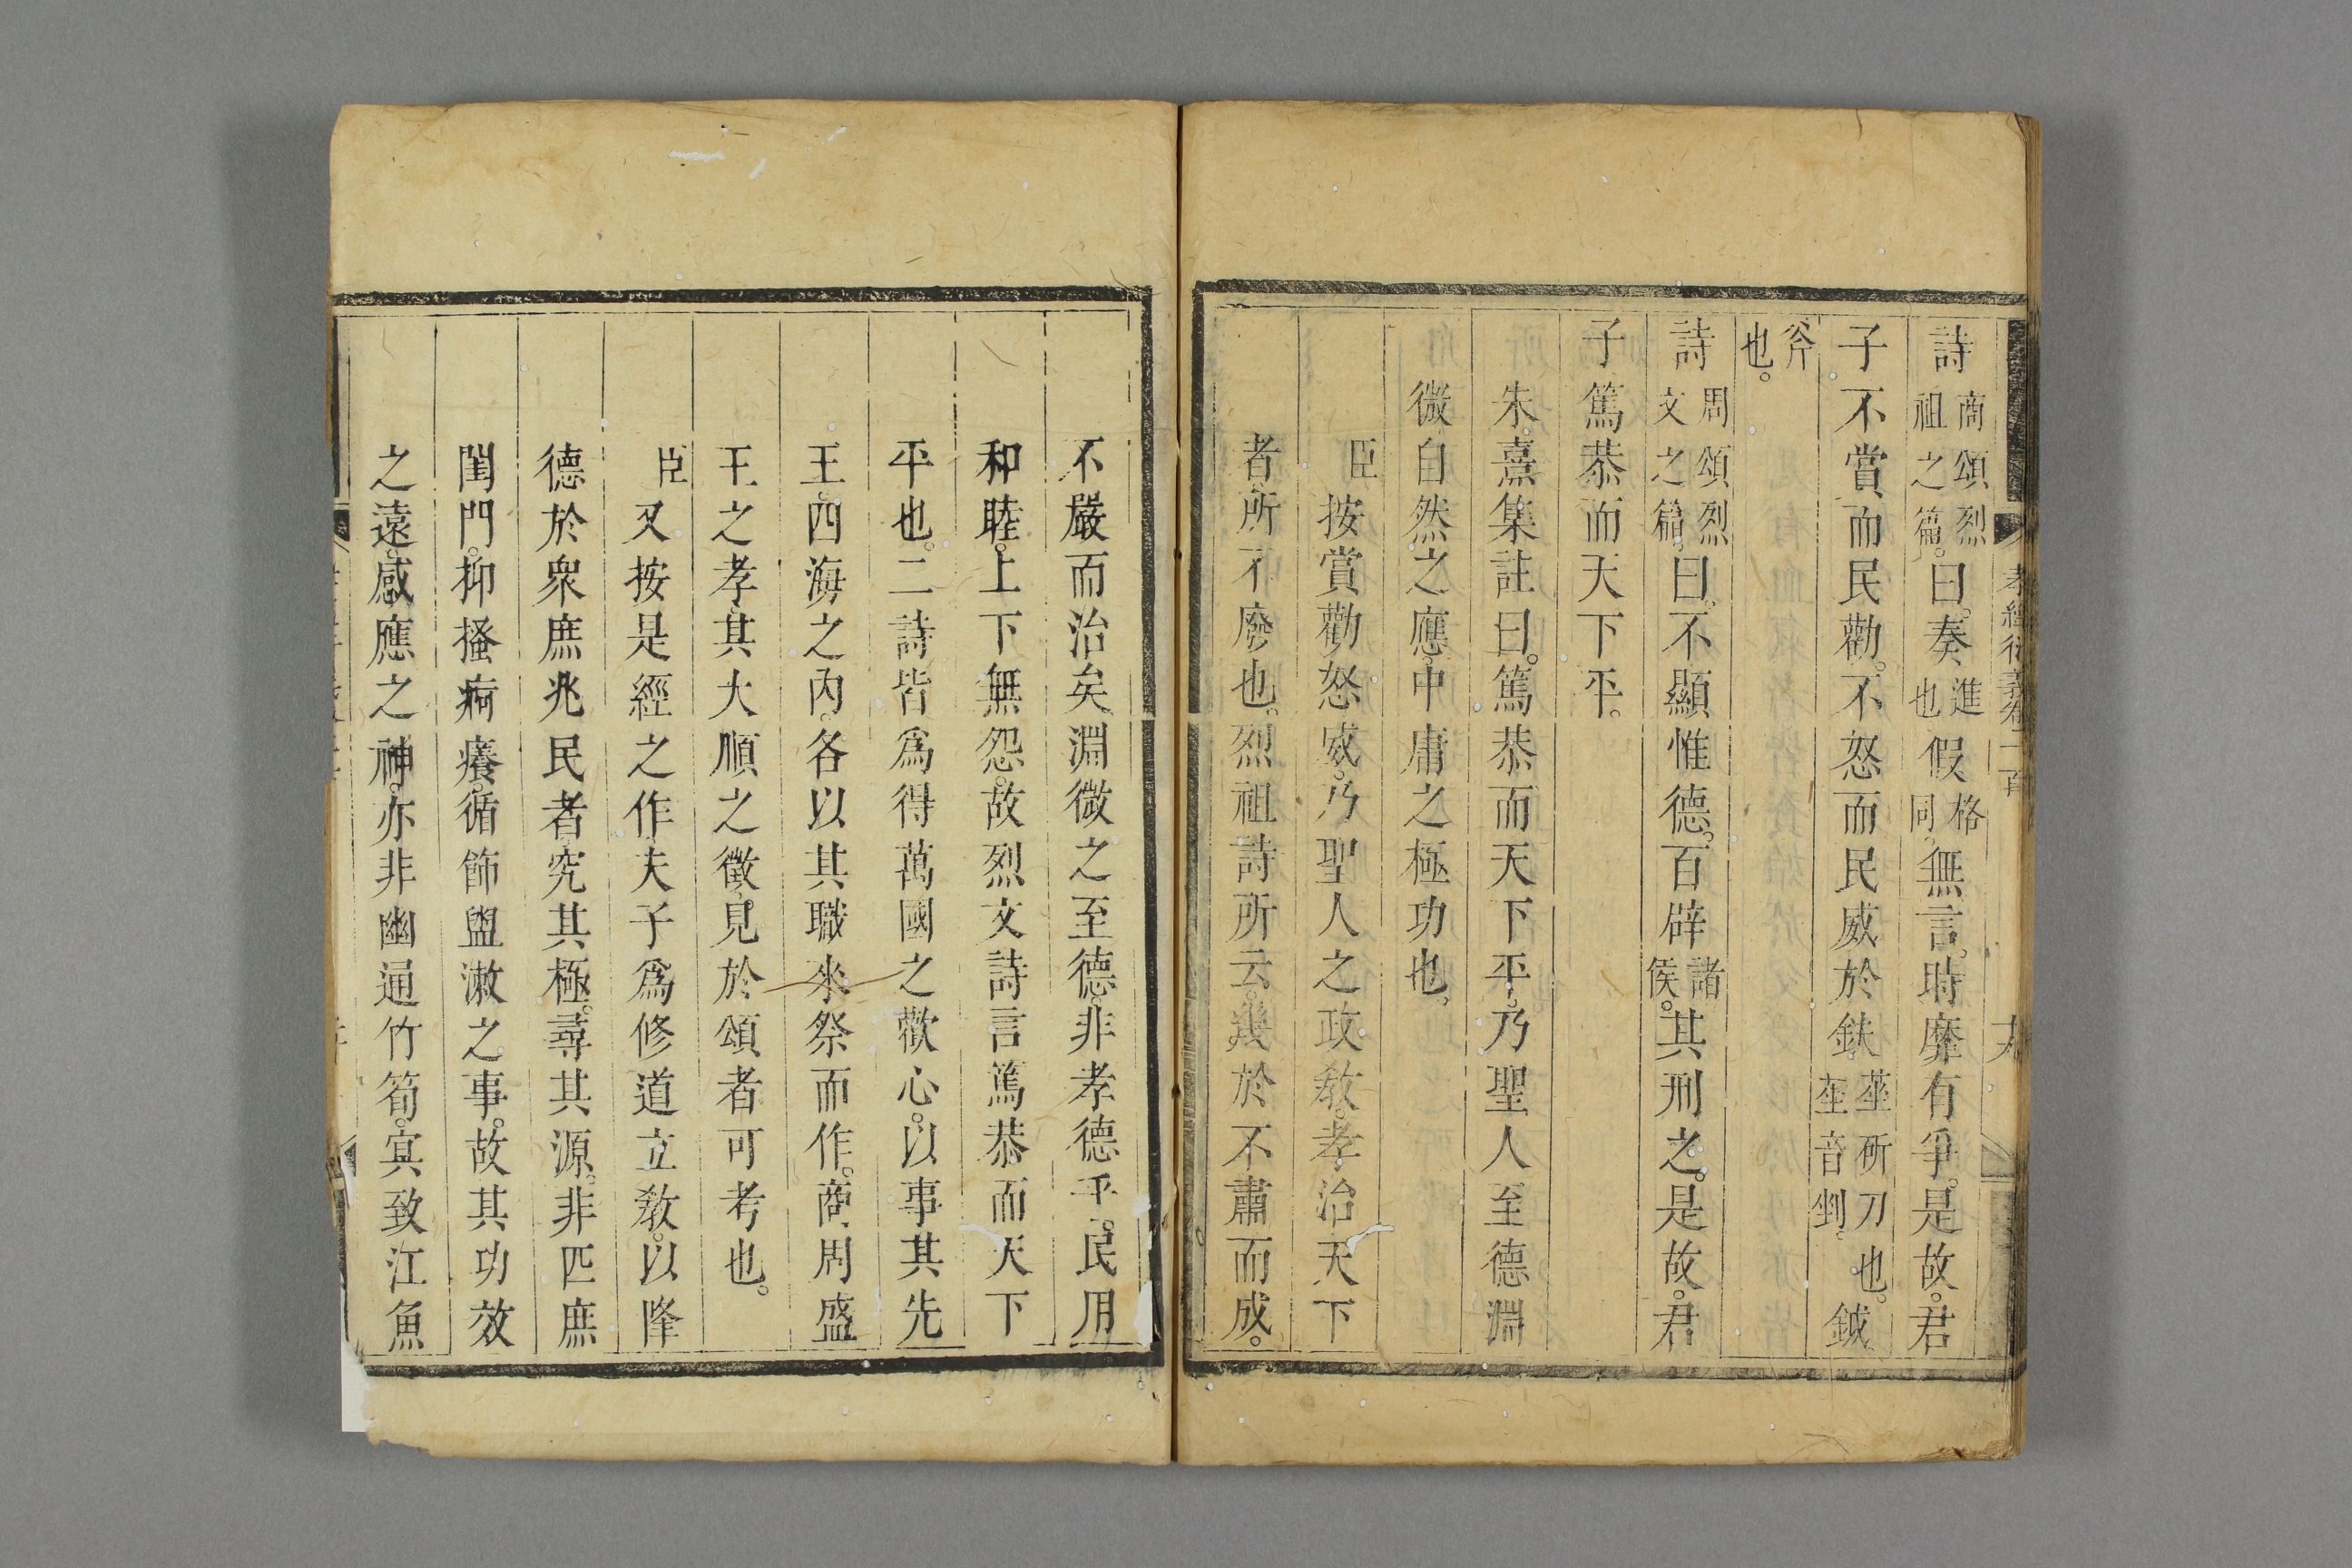 孝經衍義卷一百
詩商頌烈祖之篇。曰。奏進也假格同。無言。時靡有爭。是故。君
子不賞而民勸。不怒而民威於鈇莝斫刀也。莝音剉。鉞
斧也。
詩周頌烈文之篇。曰。不顯惟德。百辟諸侯。其刑之。是故。君
子篤恭而天下平。
朱熹集註曰。篤恭而天下平。乃聖人至德淵
微自然之應。中庸之極功也。
臣按賞勸怒威。乃聖人之政教。孝治天下
者。所不廢也。烈祖詩所云。幾於不肅而成。
不嚴而治矣。淵微之至德。非孝德乎。民用
和睦。上下無怨。故烈文詩言篤恭而天下
平也。二詩皆為得萬國之歡心。以事其先
王。四海之內。各以其職來祭而作。商周盛
王之孝。其大順之徵。見於頌者可考也。
臣又按是經之作夫子為修道立教。以隆
德於眾庶兆民者。究其極。尋其源。非匹庶
閨門。抑搔痾癢。循飾盥漱之事。故其功效
之遠。感應之神。亦非幽通竹筍。冥致江魚